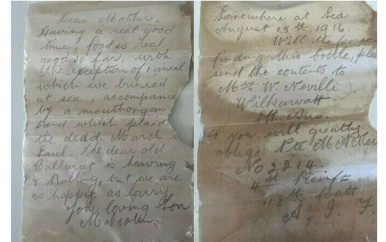 Dear Mother,
Having a real good
time, food is real
good so far, with
the exception of 1 meal
which we buried
at sea, accompanied
by a mouthorgan
band which played
the dead March
Saul. The dear old
Ballarat is heaving
& Rolling, but we are
as happy as larry.
Your loving Son
Malcolm.
Somewhere at Sea
August 15th 1916.
Will the person
finding this bottle, please
send the contents to
Mrs W. Neville,
Wilkawatt
Sth Aus.
& you will greatly
oblige. Pte M A Neville
No 2214
4th Reinf
48th Batt
A. I. F.